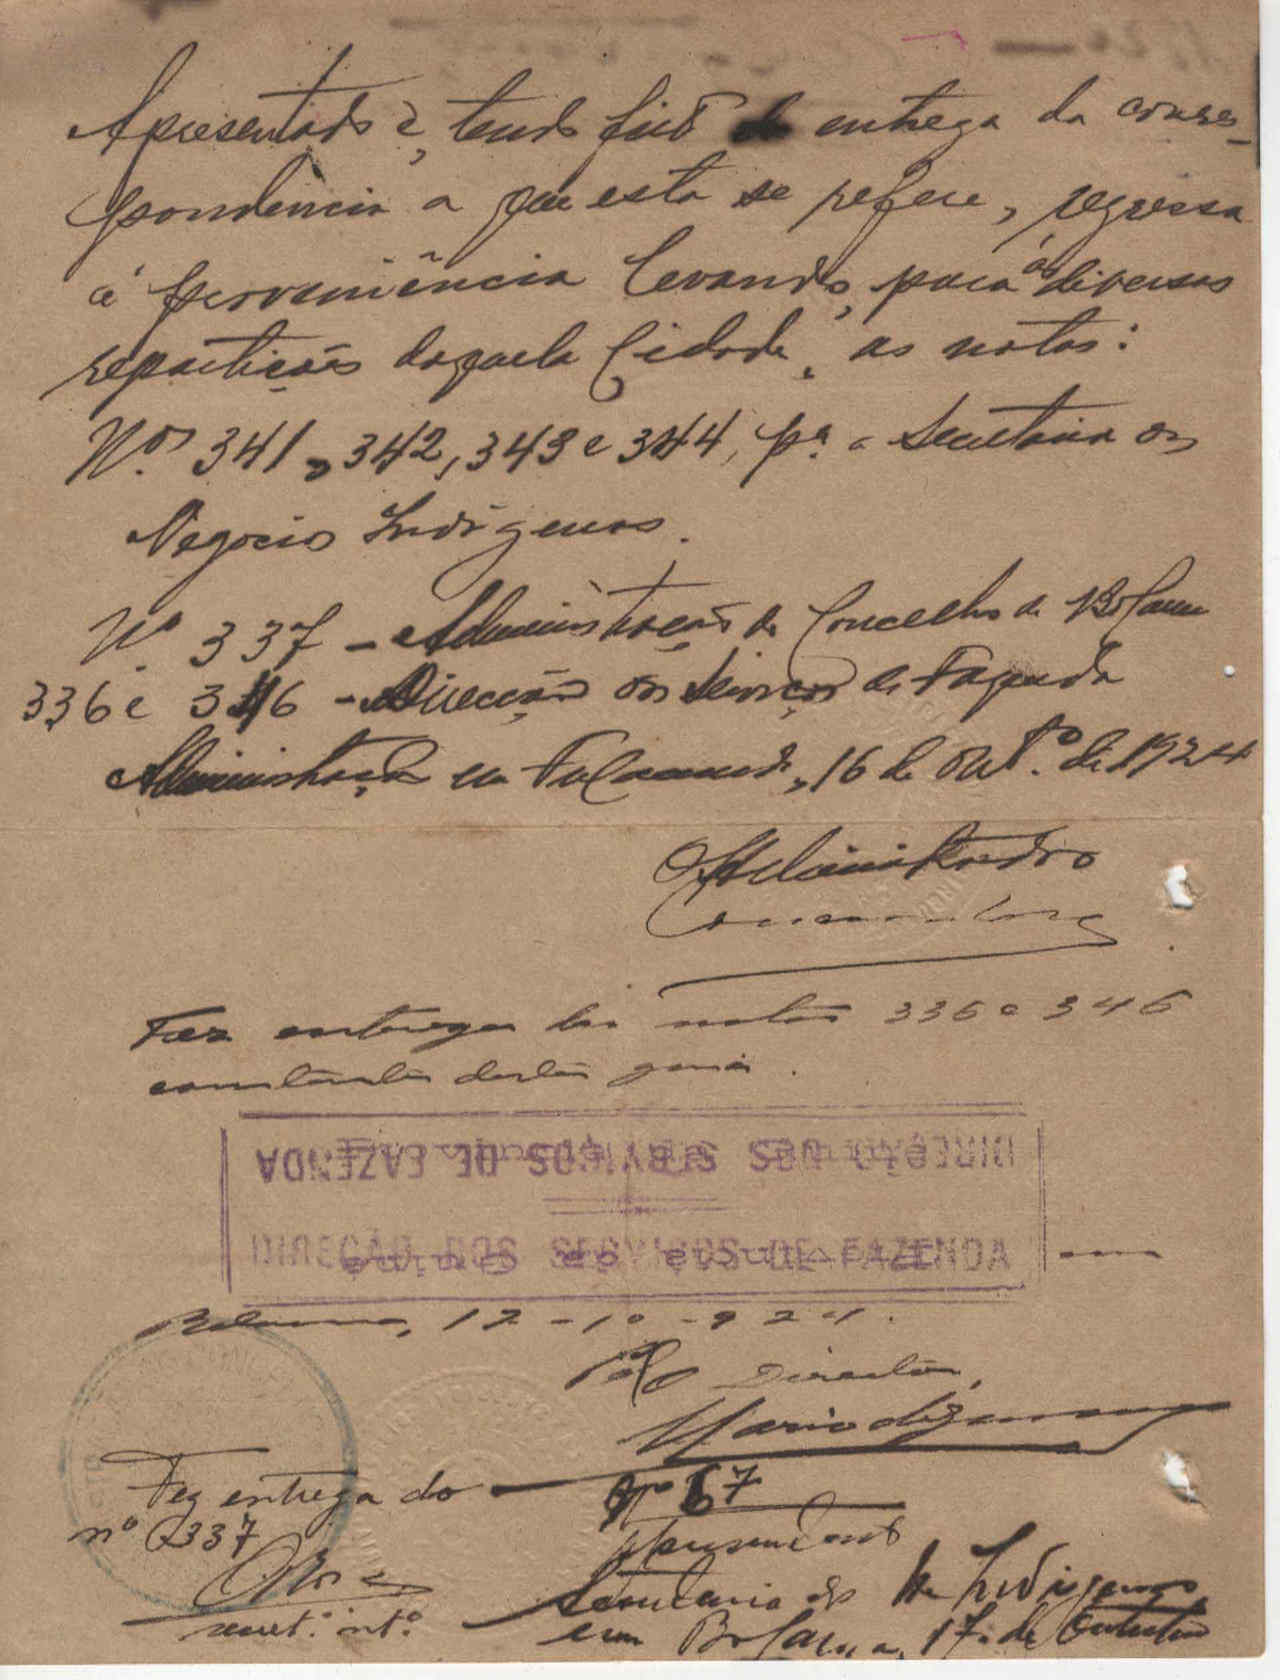 Apresentado e, tendo feito entrega da corres-
pondencia a que esta se refere, regressa
á proveniência levando, para as diversas
repartições daquela Cidade, as notas:
N.os 341, 342, 343 e 344, pª a Secretaria dos
Negocios Indigenas.
Nº 337 - Administração do Concelho de Bolama
336 e 346 - Direcção dos Serviços de Fazenda
Administração em 16 de Out.º de 1924
O Administrador
Fez entrega das notas 336 e 346
constantes desta guia.
DIREÇÃO DOS SERVIÇOS DE FAZENDA
DIREÇÃO DOS SERVIÇOS DE FAZENDA
Bolama, 17-10-924.
Pelo Director,
Mario de
Fez entrega do
nº 337
nº 67
Apresentado
Secretaria dos Indigenas
secret.º int.º
em Bolama, 17 de Outubro